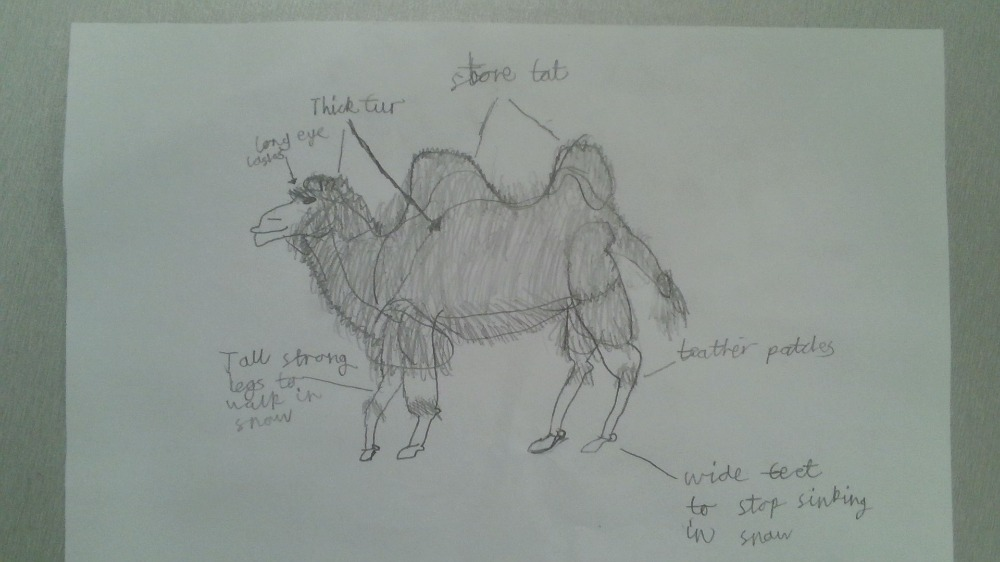 store fat
Thick fur
Long eye
lashes
Tall strong
legs to
walk in
snow
leather patches
wide feet
to stop sinking
in snow